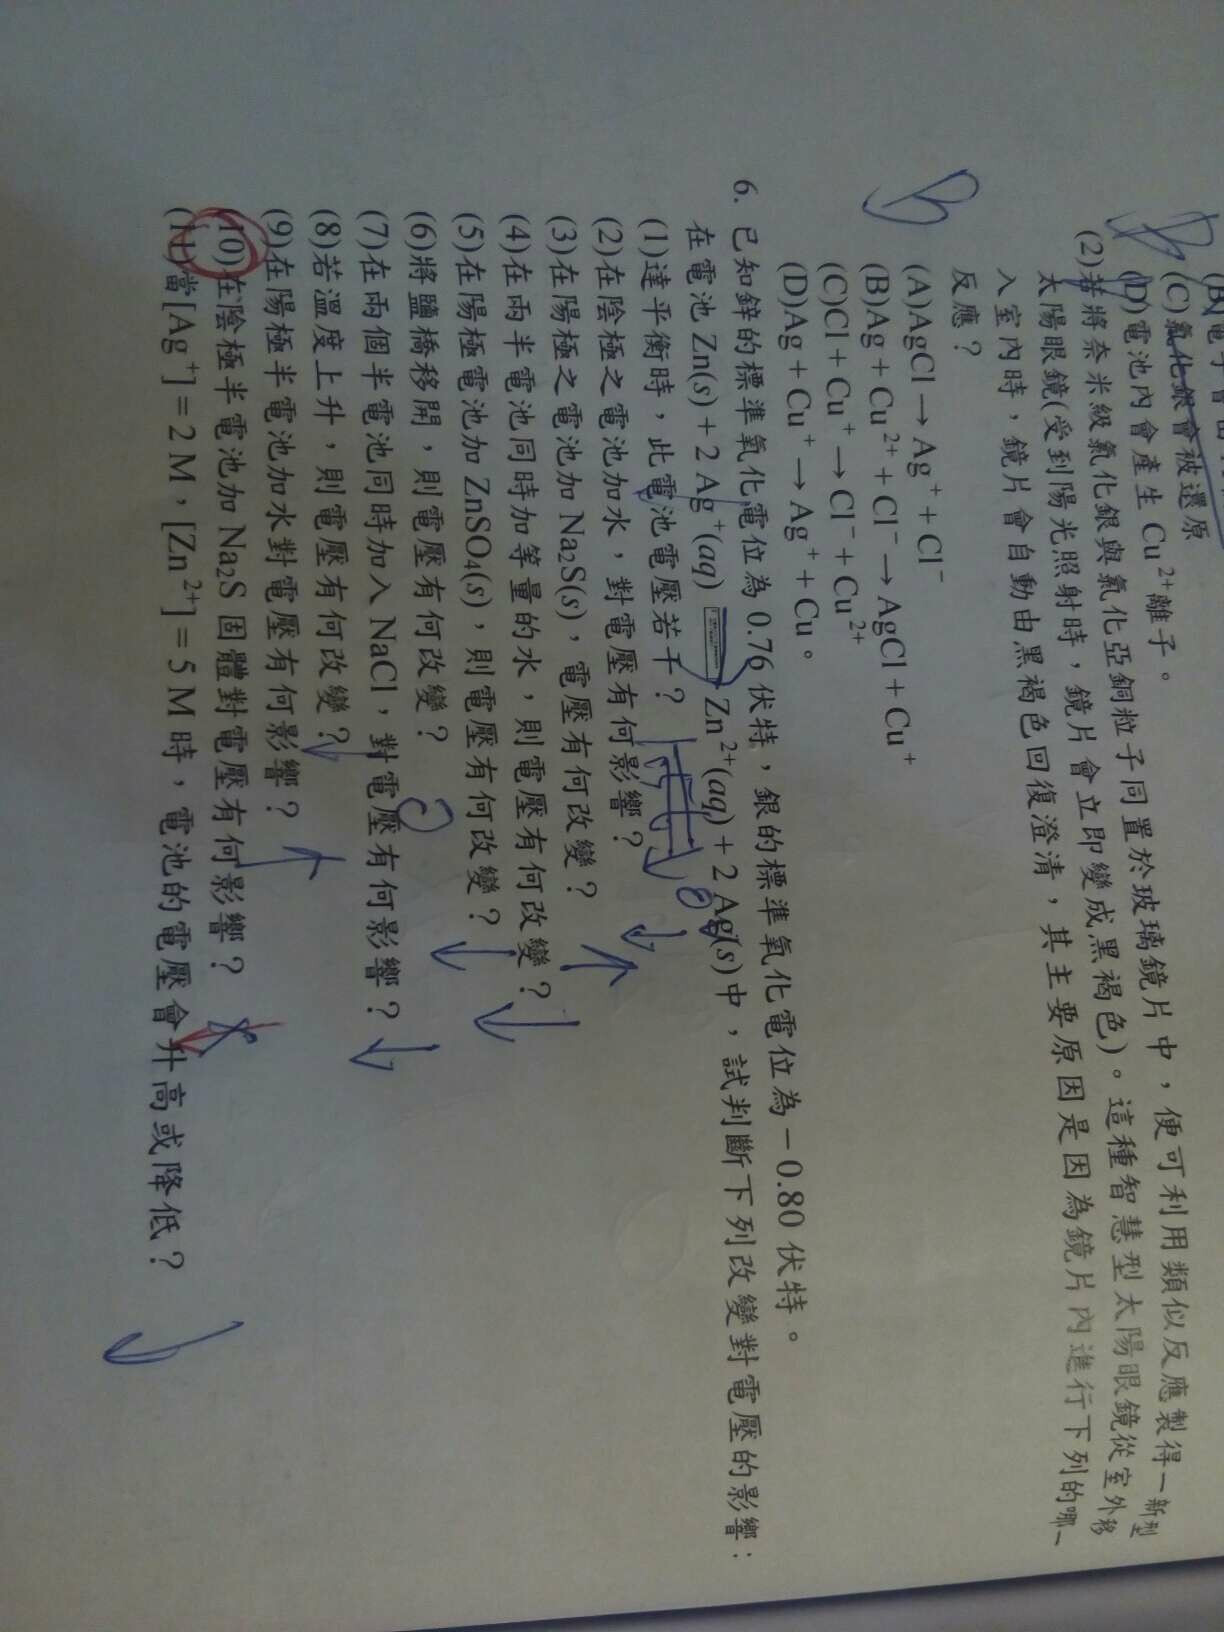 (C)氯化銀會被還原
(D)電池內會產生 Cu²⁺離子。
(2)若將奈米級氯化銀與氯化亞銅粒子同置於玻璃鏡片中，便可利用類似反應製得一新型
太陽眼鏡(受到陽光照射時，鏡片會立即變成黑褐色)。這種智慧型太陽眼鏡從室外移
入室內時，鏡片會自動由黑褐色回復澄清，其主要原因是因為鏡片內進行下列的哪一
反應？
B
(A)AgCl → Ag⁺ + Cl⁻
(B)Ag + Cu²⁺ + Cl⁻ → AgCl + Cu⁺
(C)Cl + Cu⁺ → Cl⁻ + Cu²⁺
(D)Ag + Cu⁺ → Ag⁺ + Cu。
6. 已知鋅的標準氧化電位為 0.76 伏特，銀的標準氧化電位為 −0.80 伏特。
在電池 Zn(s) + 2 Ag⁺(aq) Zn²⁺(aq) + 2 Ag(s)中，試判斷下列改變對電壓的影響：
(1)達平衡時，此電池電壓若干？ 0
(2)在陰極之電池加水，對電壓有何影響？ ↓
(3)在陽極之電池加 Na₂S(s)，電壓有何改變？ ↑
(4)在兩半電池同時加等量的水，則電壓有何改變？ ↓
(5)在陽極電池加 ZnSO₄(s)，則電壓有何改變？ ↓
(6)將鹽橋移開，則電壓有何改變？ 0
(7)在兩個半電池同時加入 NaCl，對電壓有何影響？ ↓
(8)若溫度上升，則電壓有何改變？ ↓
(9)在陽極半電池加水對電壓有何影響？ ↑
(10)在陰極半電池加 Na₂S 固體對電壓有何影響？
(11)當[Ag⁺] = 2 M，[Zn²⁺] = 5 M 時，電池的電壓會升高或降低？ ↓